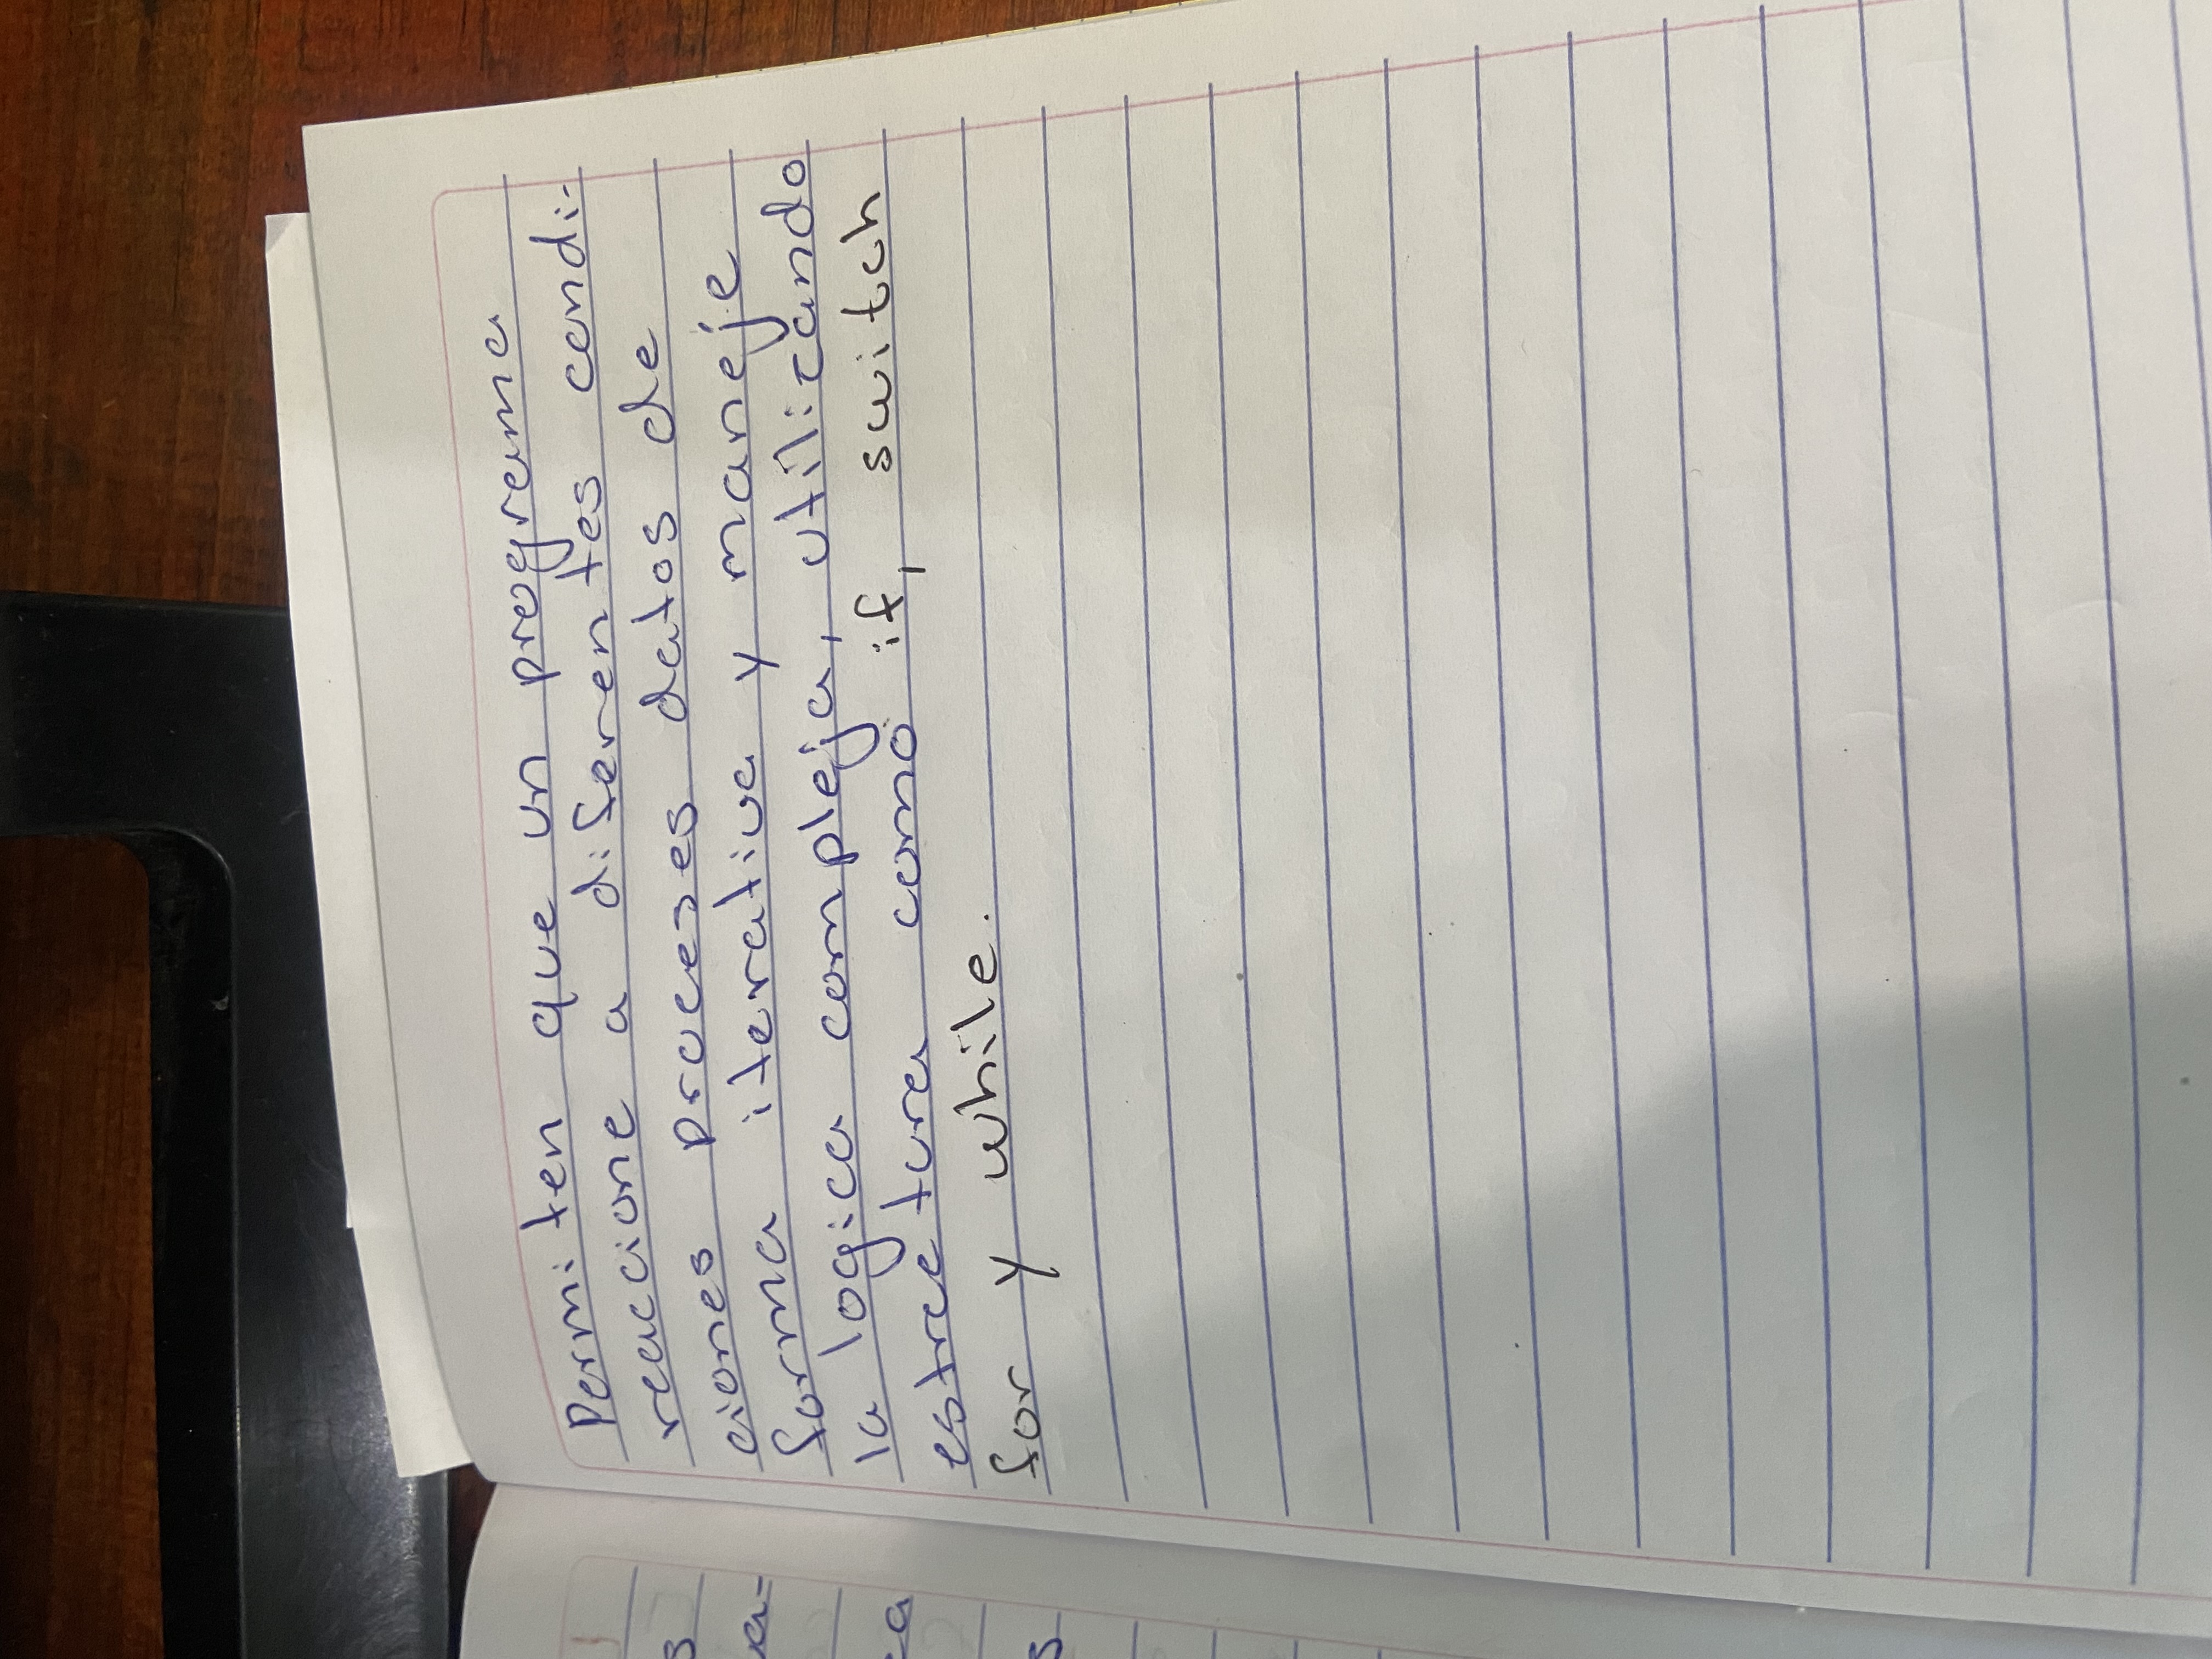 Permiten que un programa
reaccione a diferentes condi-
ciones procezes datos de
forma iterativa y maneje
la logica compleja, utilizando
estrectura como if, switch
for y while.